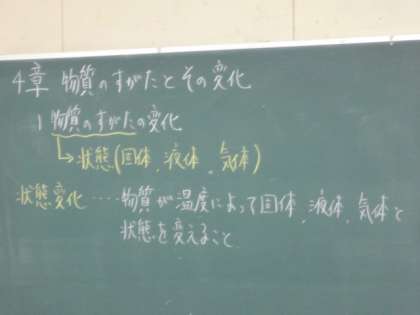 4章 物質のすがたとその変化
1 物質のすがたの変化
→状態(固体、液体、気体)
状態変化‥‥物質が温度によって固体、液体、気体と
状態を変えること